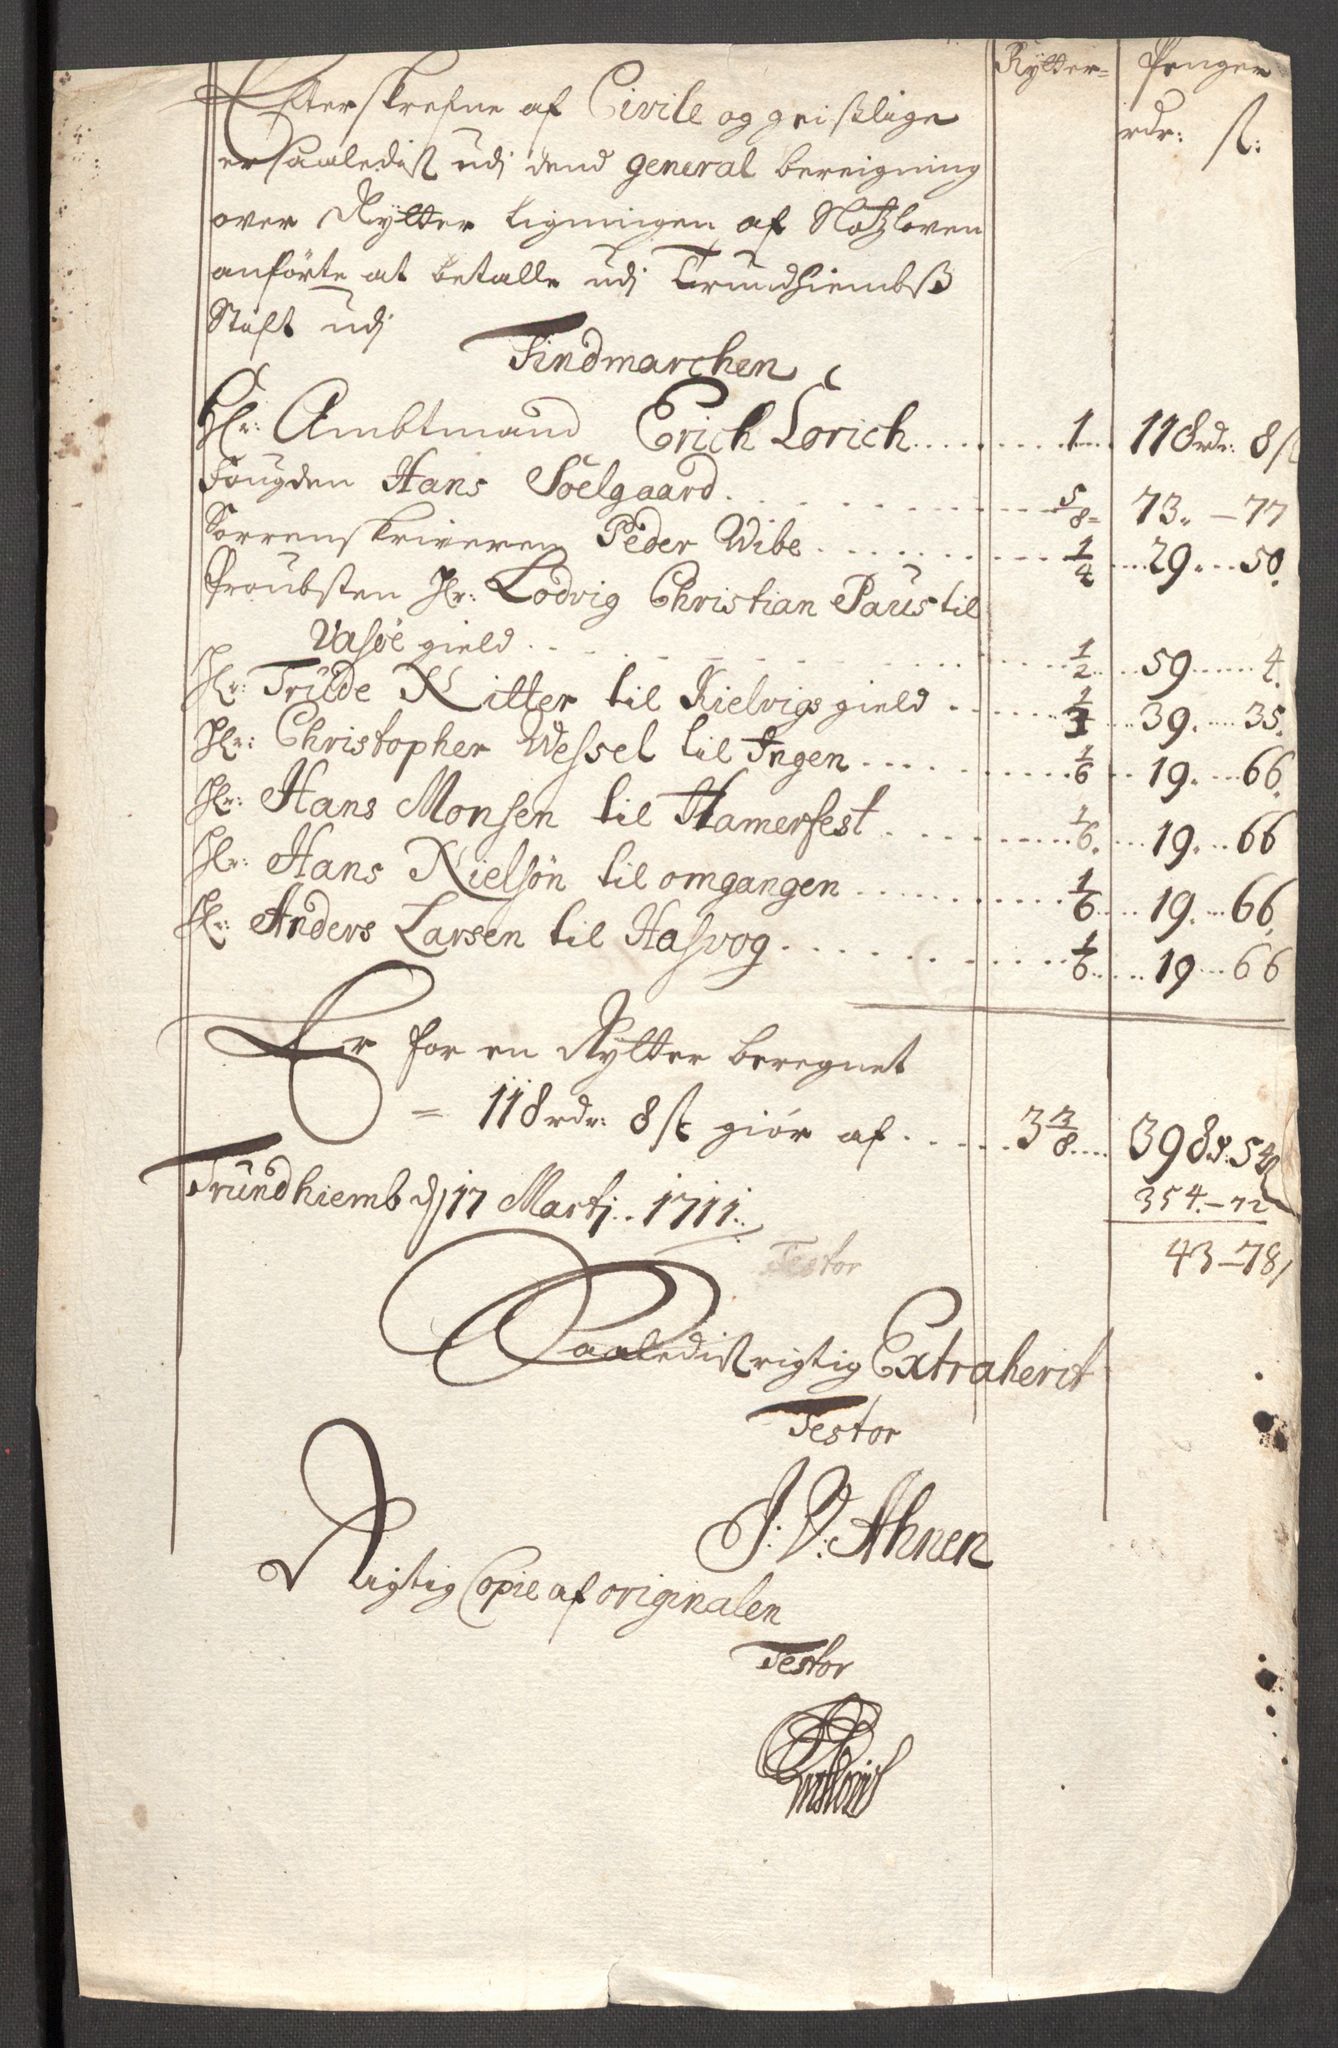 Rytter= Penger
rdr: ß:
Efterskrefne af Civile og geistlige
ersaaledist udj dend general bereigning
over Rytter ligningen af Rotzloven
anförte at betalle udj Trundhiembß
Stift udj
Findmarchen
Hr: Ambtmand Erich Lorich ........ 1 ... 118 rdr: 8 ß
Fougden Hans Soelgaard ........ 5/8 = 73. - 77
Sorrenskriveren Peder Wibe ........ 1/4 ... 29 ... 50.
Proubsten Hr: Lodvig Christian Paus til
Vasöe gield ........ 1/2 ... 59 ... 4.
Hr: Trude Nitter til Kielvigs gield ........ 1/3 ... 39. ... 35.
Hr: Christopher Wessel til Ingen ........ 1/6 ... 19. ... 66.
Hr: Hans Monsen til Hamerfest ........ 1/6. ... 19. ... 66
Hr: Hans Nielsön til omgangen ........ 1/6 ... 19. ... 66.
Hr: Anders Larsen til Hasvog ........ 1/6 ... 19 ... 66
Er for en Rytter beregnet
= 118 rdr: 8 ß giör af ..... 3 3/8 .... 398 d: 54
354. - 72
Trundhiemb dj 17 Martj: 1711:
43 - 78/
Testor
Saaledist rigtig Extraherit
Testor
J: V: Ahnen
Rigtig Copie af originalen
Testor